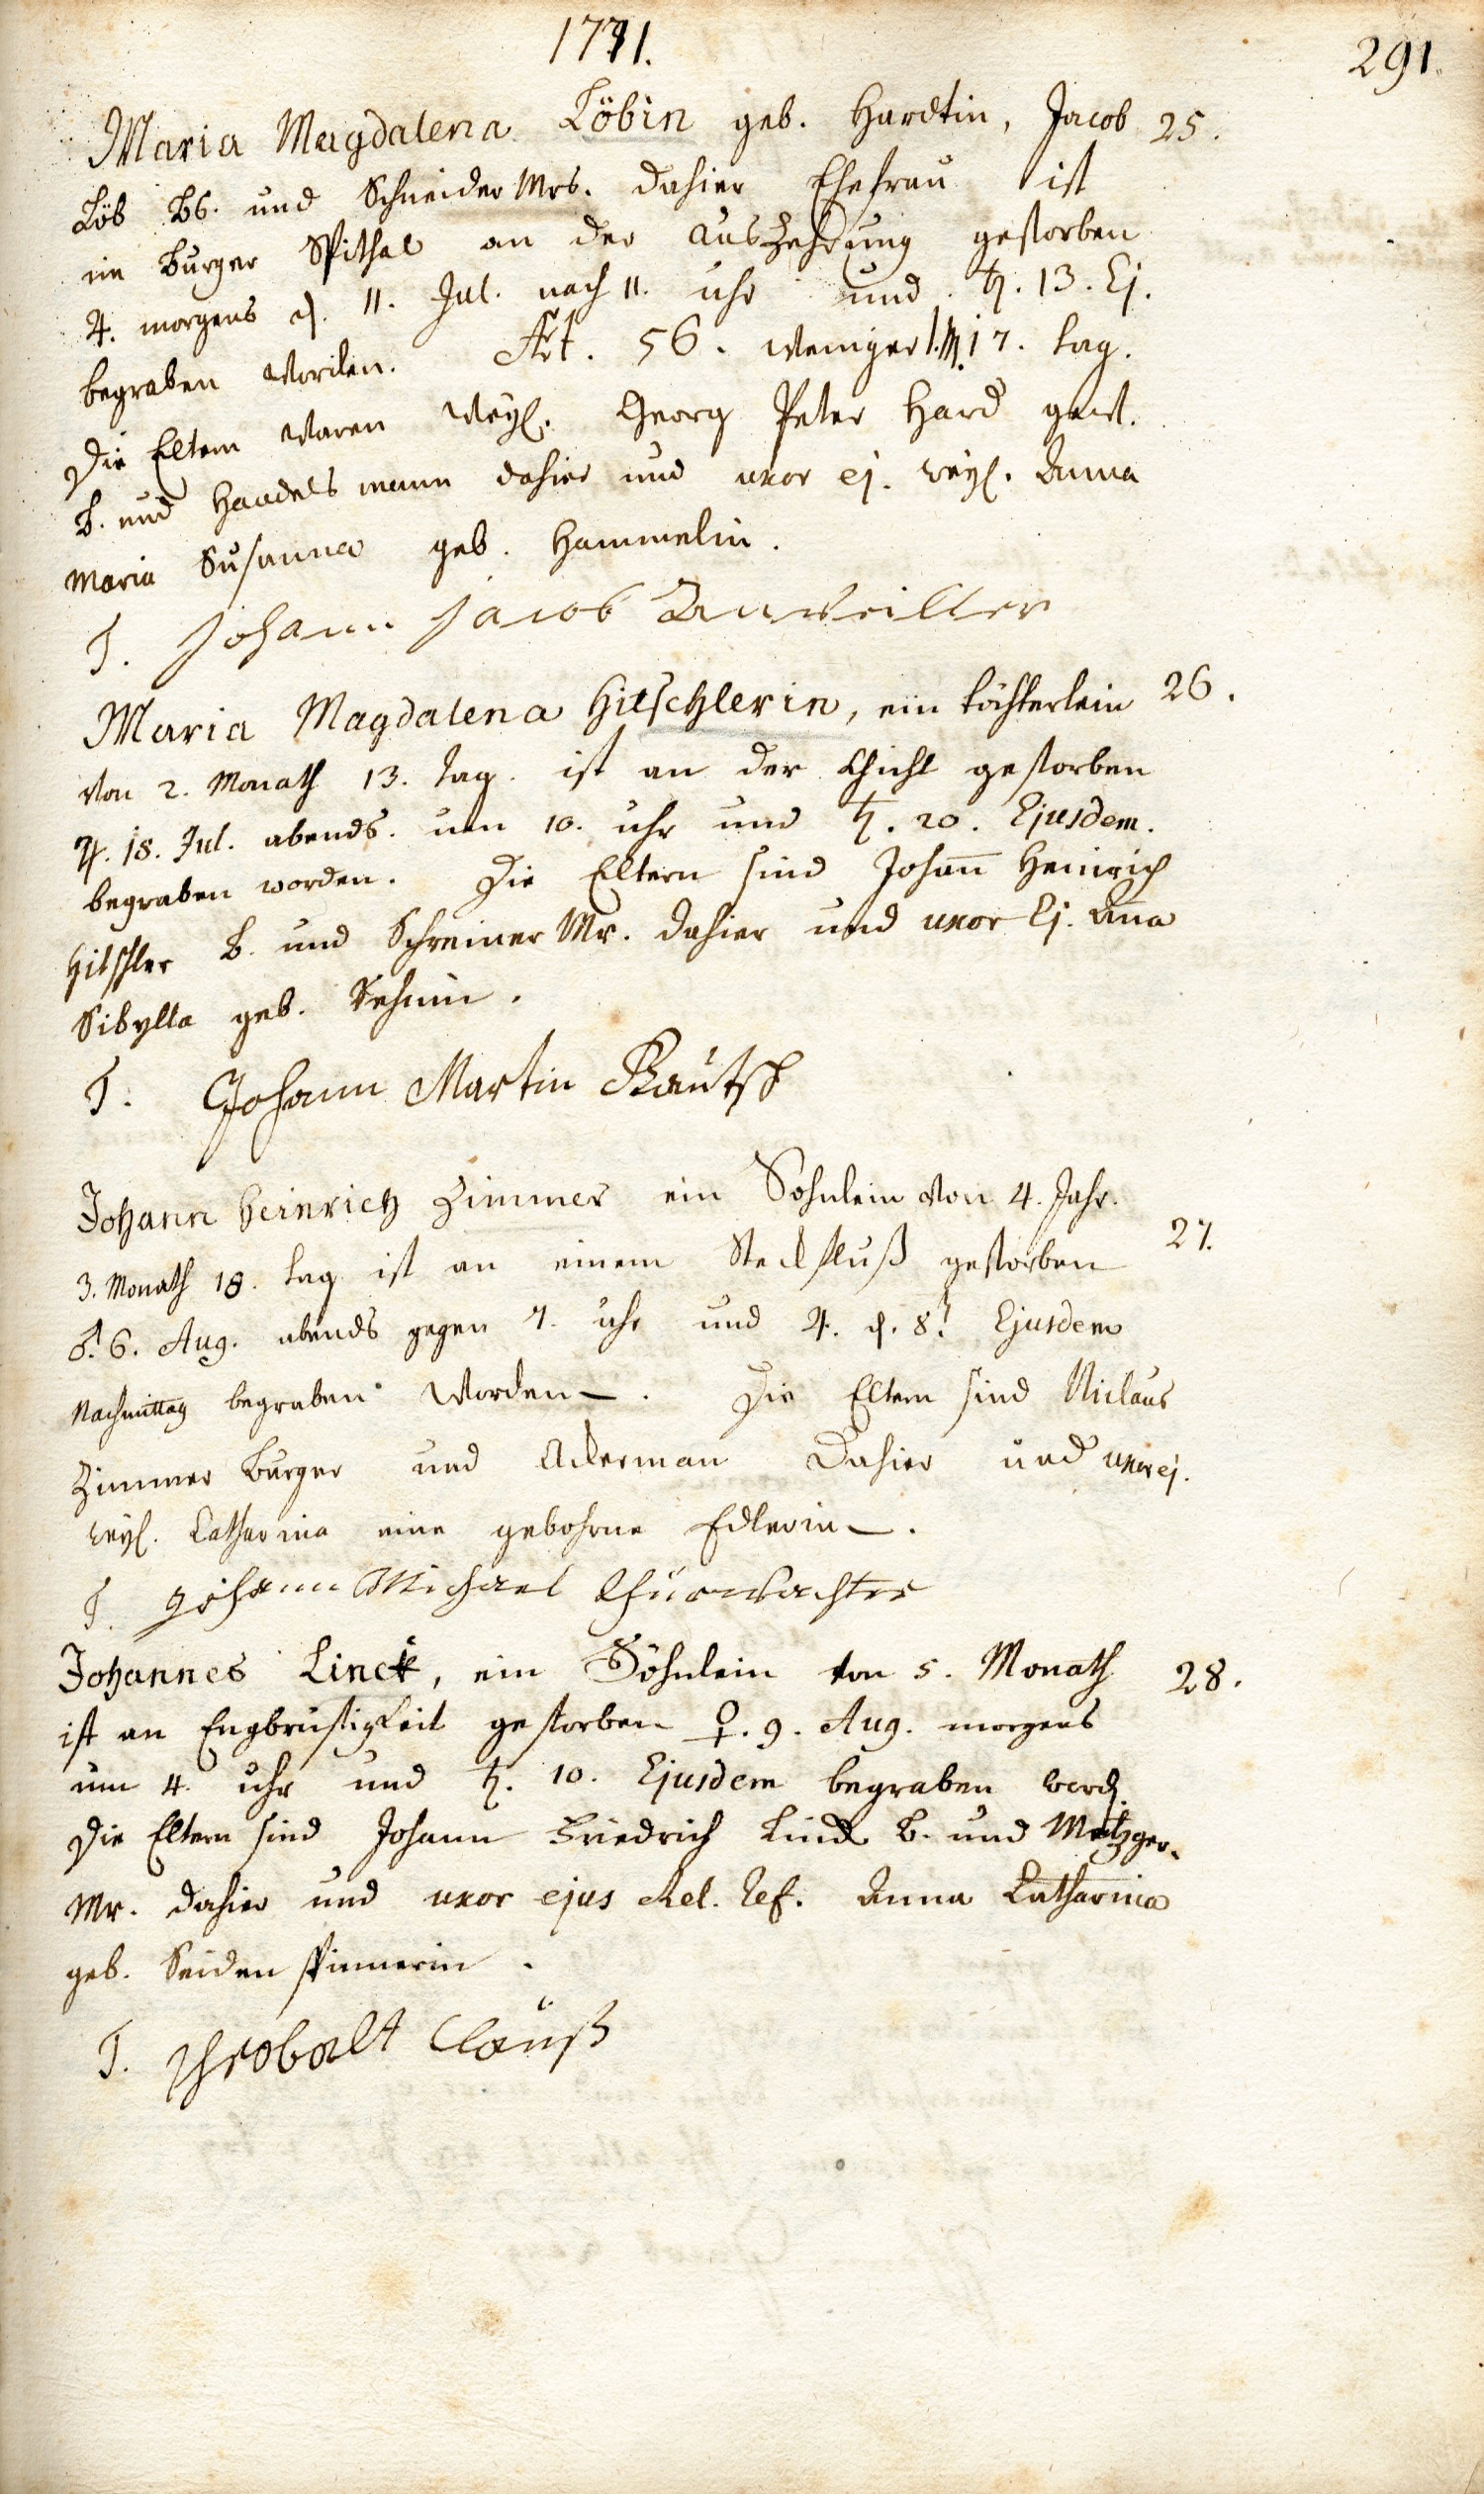 1771.
291.
Maria Magdalena Löbin geb. Hardtin, Jacob 25.
Löb Bs. und Schneider Mrs. dahier Ehefrau ist
im Burger Spithal an der Auszehrung gestorben
♃. morgens d. 11. Jul. nach 11. uhr und ♄. 13. Ej.
begraben worden. Æt. 56. weniger 1. M. 17. tag.
Die Eltern waren weyl. Georg Peter Hard gew.
B. und Handelsmann dahier und uxor ej. weyl. Anna
Maria Susanna geb. Hammelin.
T. Johann Jacob Anweiller
Maria Magdalena Hitschlerin, ein töchterlein 26.
von 2. Monath 13. tag. ist an der Gicht gestorben
♃. 18. Jul. abends. um 10. uhr und ♄. 20. Ejusdem.
begraben worden. Die Eltern sind Johan̄ Heinrich
Hitschler B. und Schreiner Mr. dahier und uxor Ej. An̄a
Sibylla geb.
T. Johann Martin Bautsch
Johann Heinrich Zimmer ein Sohnlein von 4. Jahr.
27.
3. Monath 18. tag ist an einem Steckfluß gestorben
♂. 6. Aug. abends gegen 7. uhr und ♃. d. 8t Ejusdem
Nachmittag begraben worden. Die Eltern sind Niclaus
Zimmer Burger und Ackerman dahier und uxor ej.
weyl. Catharina eine gebohrne Edlerin.
T. Johann Michael Thürwachter
Johannes Linck, ein Söhnlein von 5. Monath 28.
ist an Engbrüstigkeit gestorben ♀. 9. Aug. morgens
um 4. uhr und ♄. 10. Ejusdem begraben word.
Die Eltern sind Johann Friedrich Linck B. und Metzger-
Mr. dahier und uxor ejus Rel. Ref. Anna Catharina
geb. Seidenspinnerin.
T. Theobalt Clauß